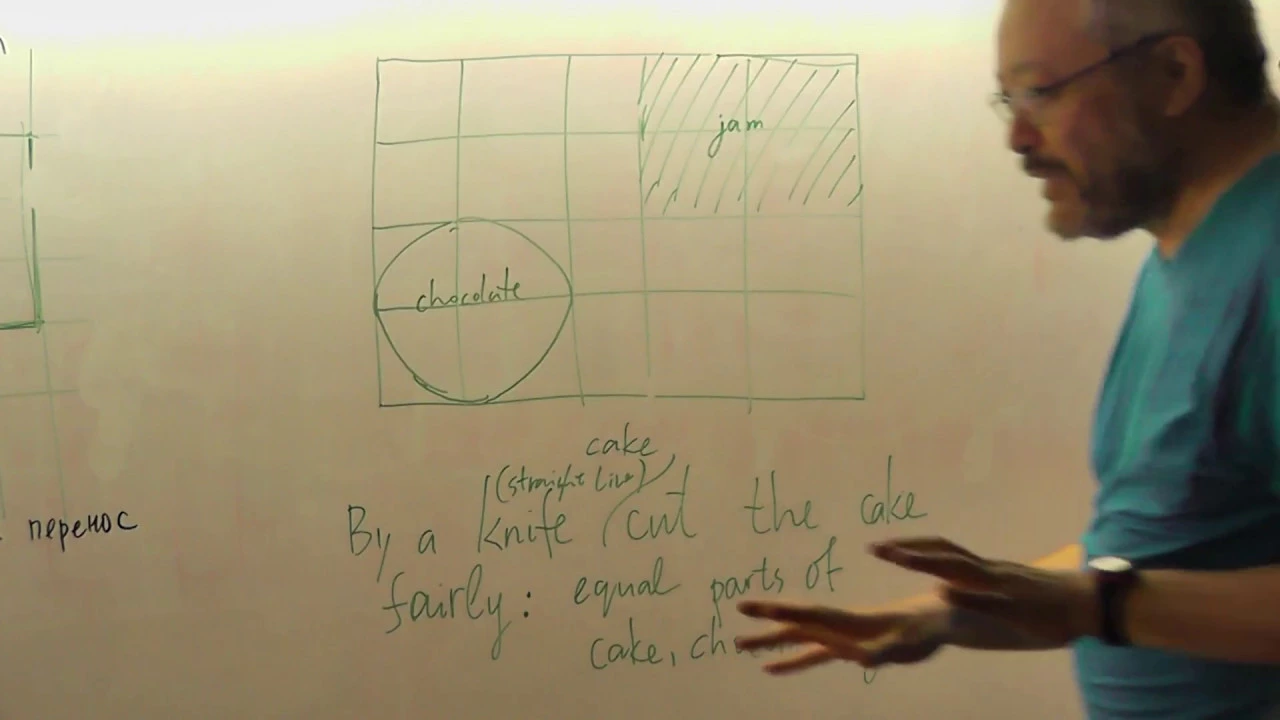 jam
chocolate
cake
(straight line)
By a knife cut the cake
fairly: equal parts of
cake,
перенос